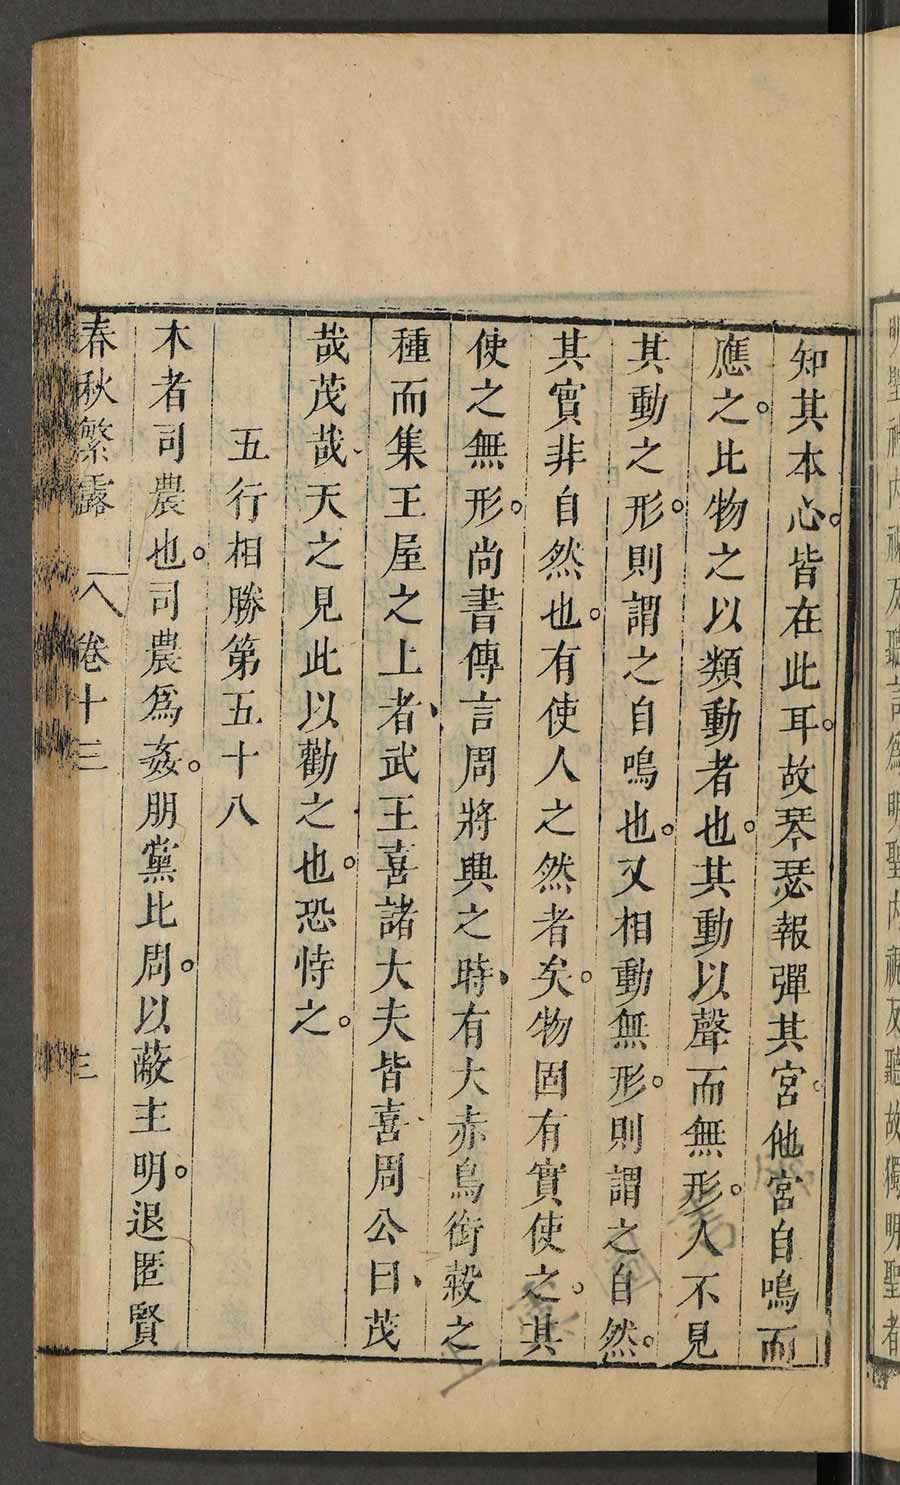 明聖神內視反聽言爲明聖內視反聽故獨明聖者
知其本心。皆在此耳。故琴瑟報彈其宮。他宮自鳴而
應之。比物之以類動者也。其動以聲而無形。人不見
其動之形。則謂之自鳴也。又相動無形。則謂之自然。
其實非自然也。有使人之然者矣。物固有實使之。其
使之無形。尚書傳言周將興之時、有大赤烏銜榖之
種而集王屋之上者、武王喜諸大夫皆喜周公曰、茂
哉茂哉、天之見此以勸之也。恐恃之。
五行相勝第五十八
木者司農也。司農爲姦。朋黨比周。以蔽主明。退匿賢
春秋繁露 卷十三 三